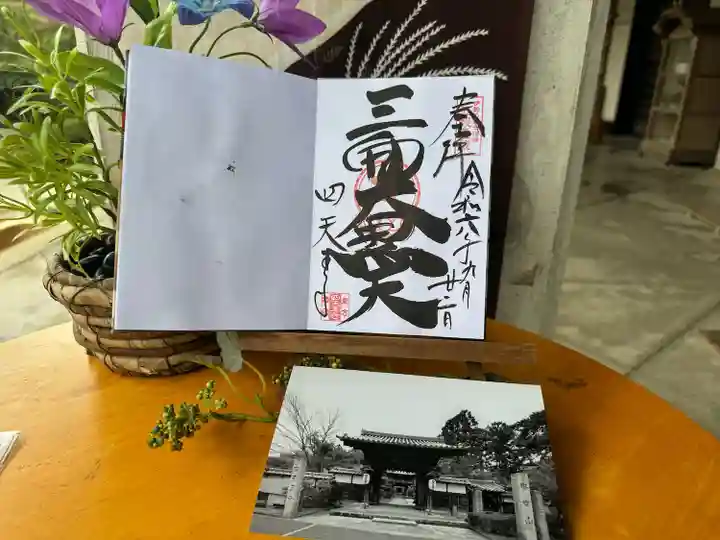 奉拝 令和六年九月廿二日
三面大黒天
四天王寺